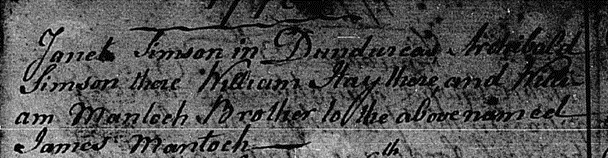 Janet Simson in Dundurcas Archibald
Simson there William Hay there, and Willi
am Mantoch Brother to the abovenamed
James Mantoch